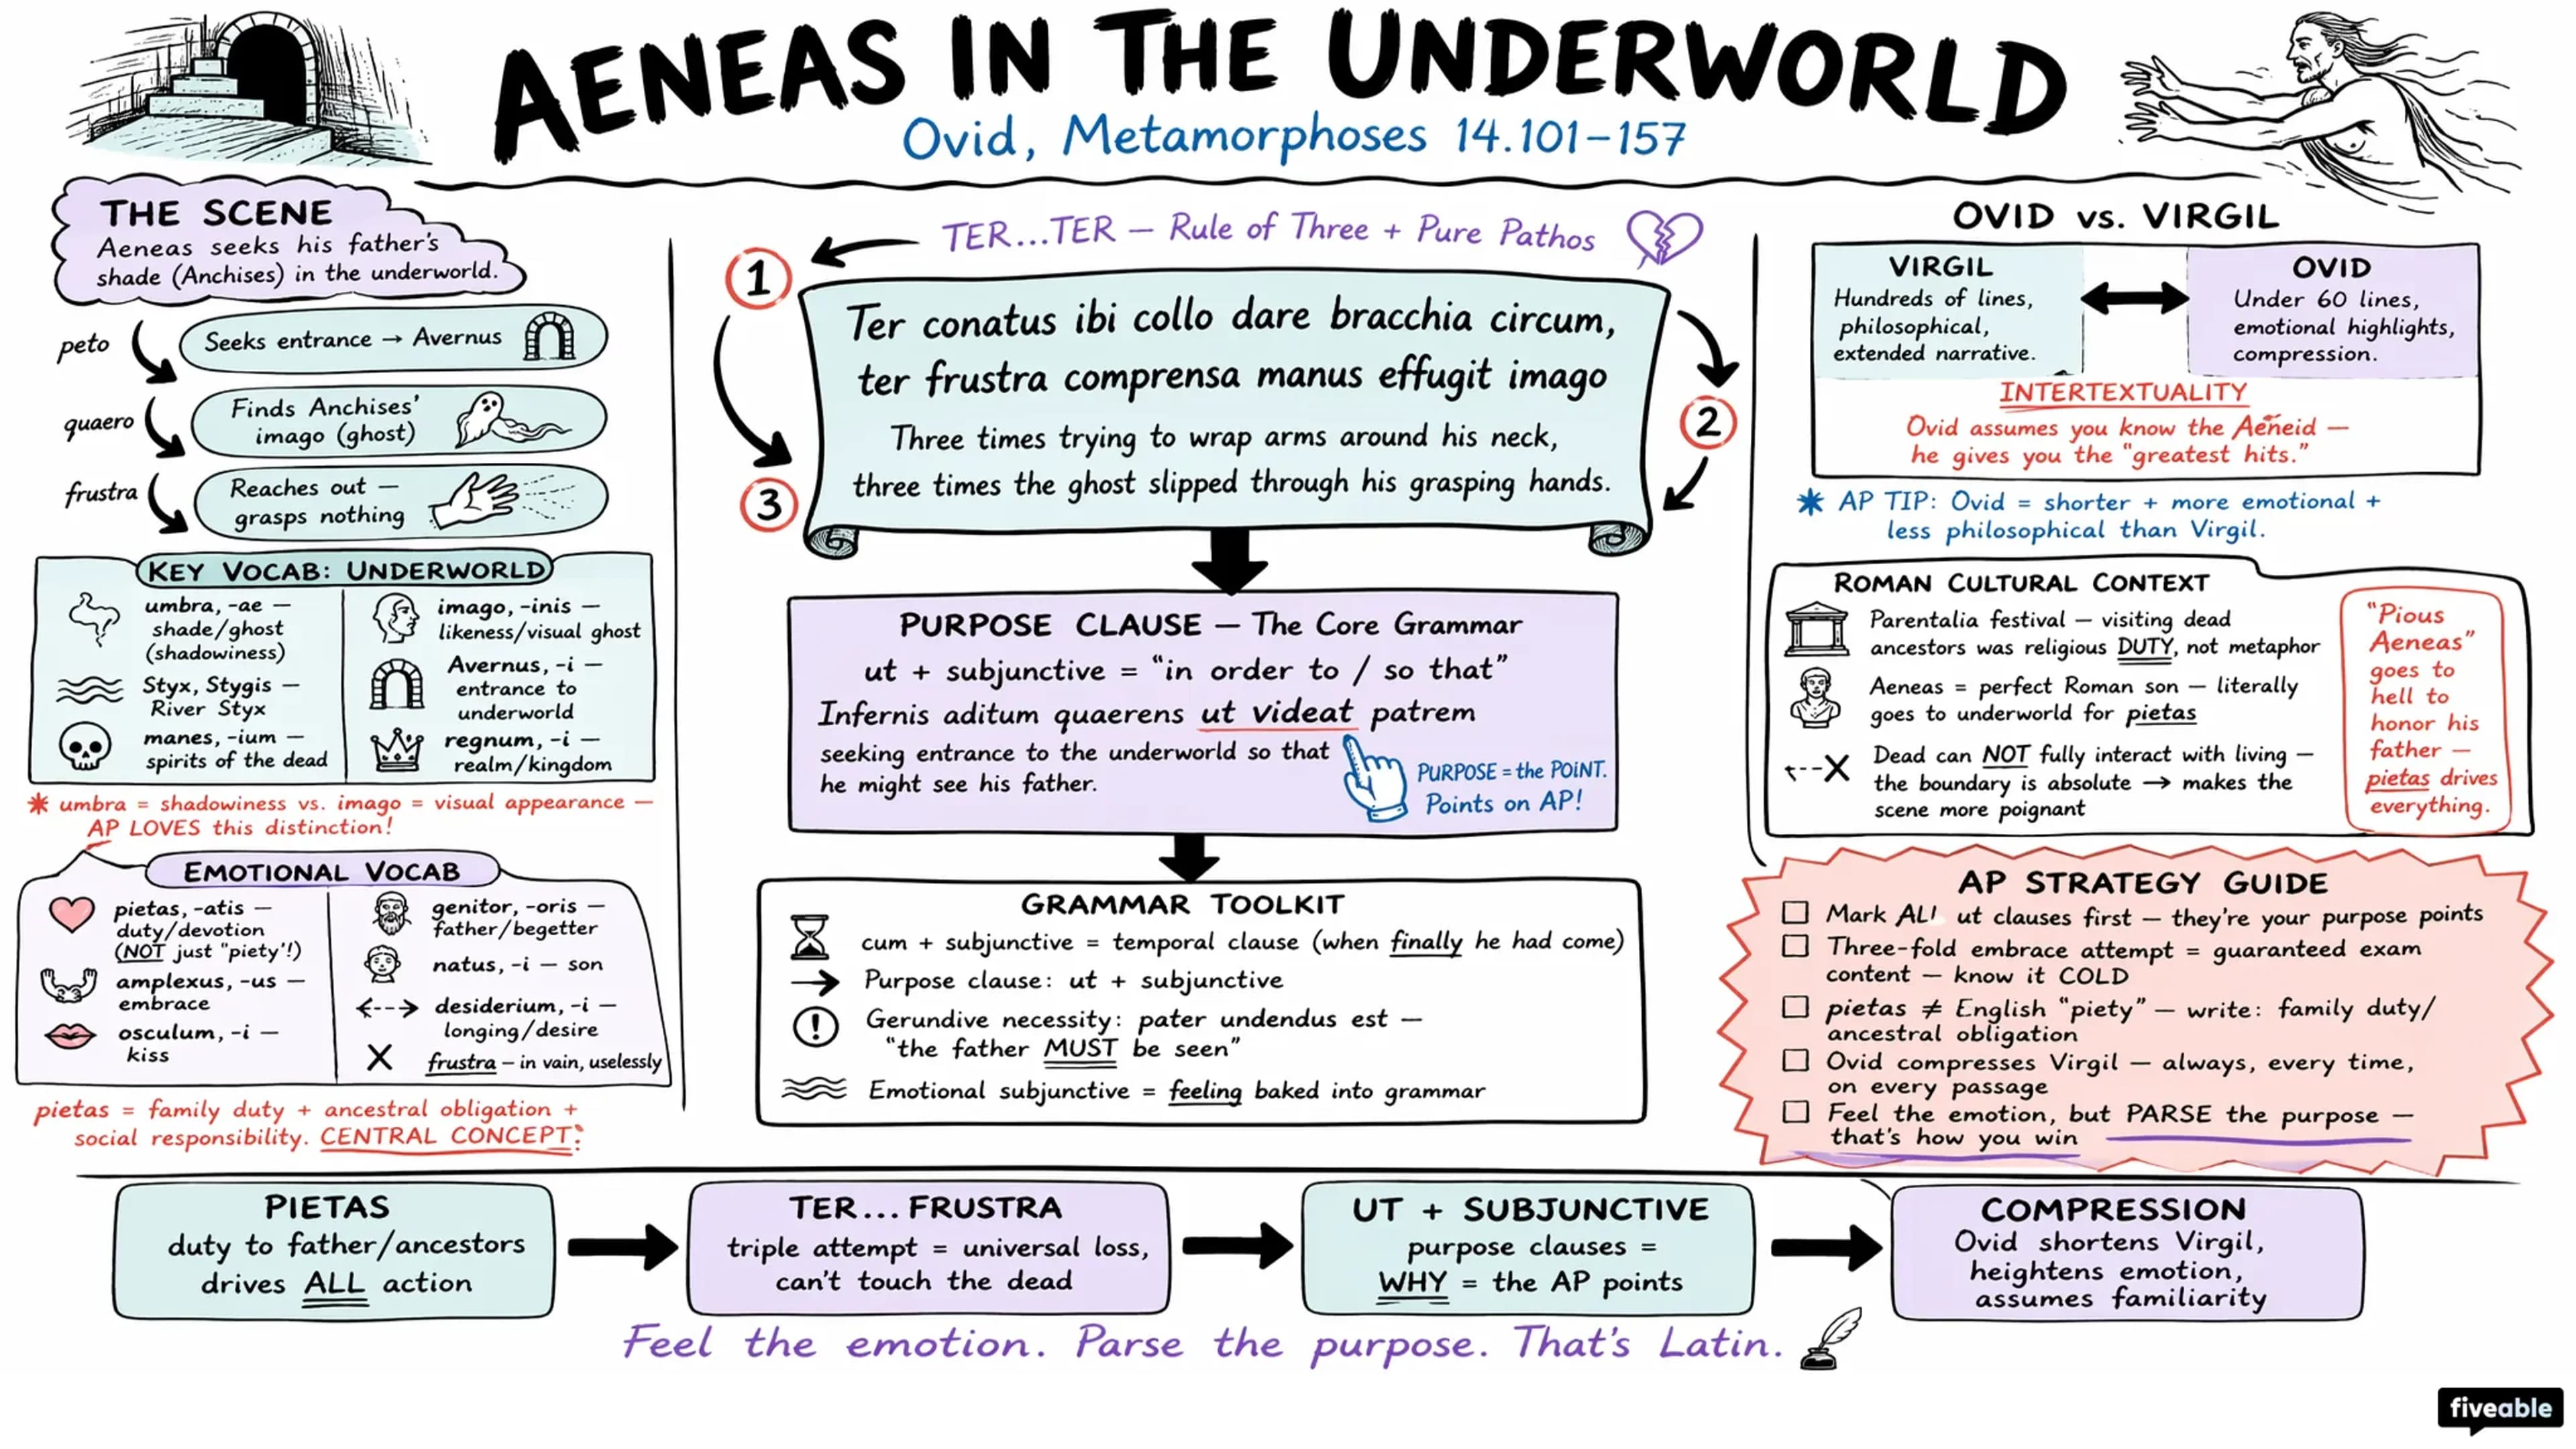 AENEAS IN THE UNDERWORLD
Ovid, Metamorphoses 14.101–157
THE SCENE
Aeneas seeks his father's
shade (Anchises) in the underworld.
peto
Seeks entrance → Avernus
quaero
Finds Anchises'
imago (ghost)
frustra
Reaches out —
grasps nothing
KEY VOCAB: UNDERWORLD
umbra, -ae —
shade/ghost
(shadowiness)
Styx, Stygis —
River Styx
manes, -ium —
spirits of the dead
imago, -inis —
likeness/visual ghost
Avernus, -i —
entrance to
underworld
regnum, -i —
realm/kingdom
* umbra = shadowiness vs. imago = visual appearance —
AP LOVES this distinction!
EMOTIONAL VOCAB
pietas, -atis —
duty/devotion
(NOT just "piety'!)
amplexus, -us —
embrace
osculum, -i —
kiss
genitor, -oris —
father/begetter
natus, -i — son
desiderium, -i —
longing/desire
frustra – in vain, uselessly
pietas = family duty + ancestral obligation +
social responsibility. CENTRAL CONCEPT:
TER...TER – Rule of Three + Pure Pathos
1
2
3
Ter conatus ibi collo dare bracchia circum,
ter frustra comprensa manus effugit imago
Three times trying to wrap arms around his neck,
three times the ghost slipped through his grasping hands.
PURPOSE CLAUSE — The Core Grammar
ut + subjunctive = "in order to / so that"
Infernis aditum quaerens ut videat patrem
seeking entrance to the underworld so that
he might see his father.
PURPOSE = the POINT.
Points on AP!
GRAMMAR TOOLKIT
cum + subjunctive = temporal clause (when finally he had come)
→ Purpose clause: ut + subjunctive
! Gerundive necessity: pater undendus est —
"the father MUST be seen"
Emotional subjunctive = feeling baked into grammar
OVID vs. VIRGIL
VIRGIL
Hundreds of lines,
philosophical,
extended narrative.
OVID
Under 60 lines,
emotional highlights,
compression.
INTERTEXTUALITY
Ovid assumes you know the Aeneid —
he gives you the "greatest hits."
* AP TIP: Ovid = shorter + more emotional +
less philosophical than Virgil.
ROMAN CULTURAL CONTEXT
Parentalia festival — visiting dead
ancestors was religious DUTY, not metaphor
Aeneas = perfect Roman son — literally
goes to underworld for pietas
Dead can NOT fully interact with living —
the boundary is absolute → makes the
scene more poignant
"Pious
Aeneas"
goes to
hell to
honor his
father —
pietas drives
everything.
AP STRATEGY GUIDE
Mark ut clauses first — they're your purpose points
Three-fold embrace attempt = guaranteed exam
content — know it COLD
pietas ≠ English "piety" — write: family duty/
ancestral obligation
Ovid compresses Virgil — always, every time,
on every passage
Feel the emotion, but PARSE the purpose —
that's how you win
PIETAS
duty to father/ancestors
drives ALL action
TER... FRUSTRA
triple attempt = universal loss,
can't touch the dead
UT + SUBJUNCTIVE
purpose clauses =
WHY = the AP points
COMPRESSION
Ovid shortens Virgil,
heightens emotion,
assumes familiarity
Feel the emotion. Parse the purpose. That's Latin.
fiveable